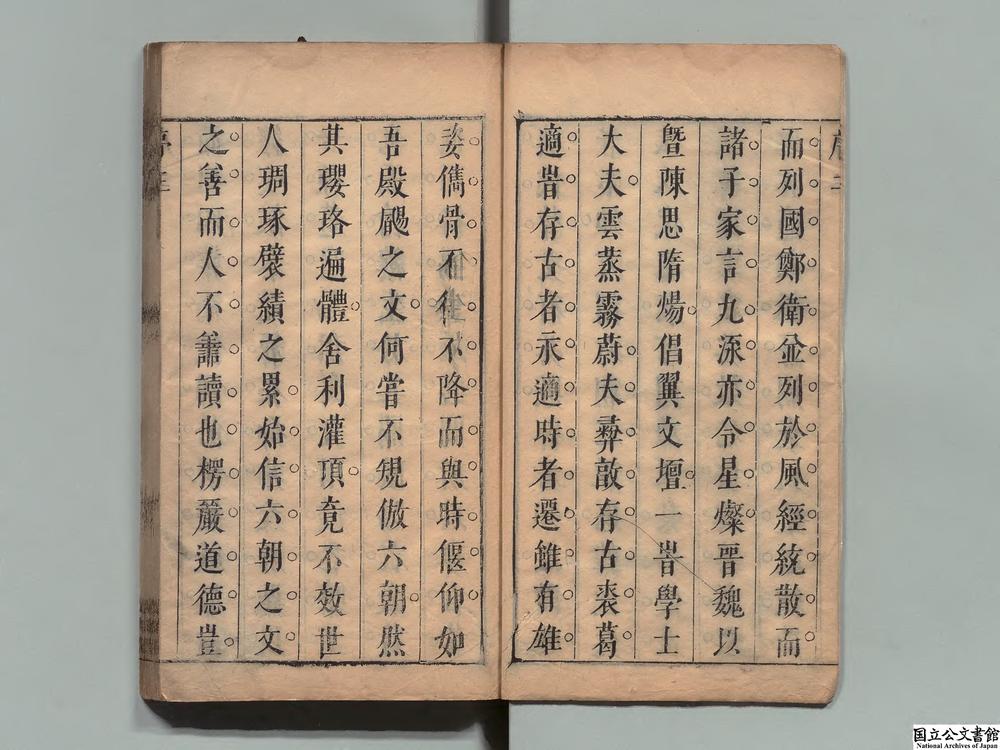 序二
而列國鄭衛並列於風經統散而
諸子家言九流亦令星燦晉魏以
曁陳思隋煬倡翼文壇一旹學士
大夫雲蒸霧蔚夫彝敦存古裘葛
適旹存古者永適時者遷雖有雄
姿儁骨不得不降而與時偃仰如
吾殿颺之文何嘗不規倣六朝然
其瓔珞遍體舍利灌頂竟不效世
人琱琢襞績之累始信六朝之文
之善而人不善讀也楞嚴道德豈
序三
国立公文書館
National Archives of Japan